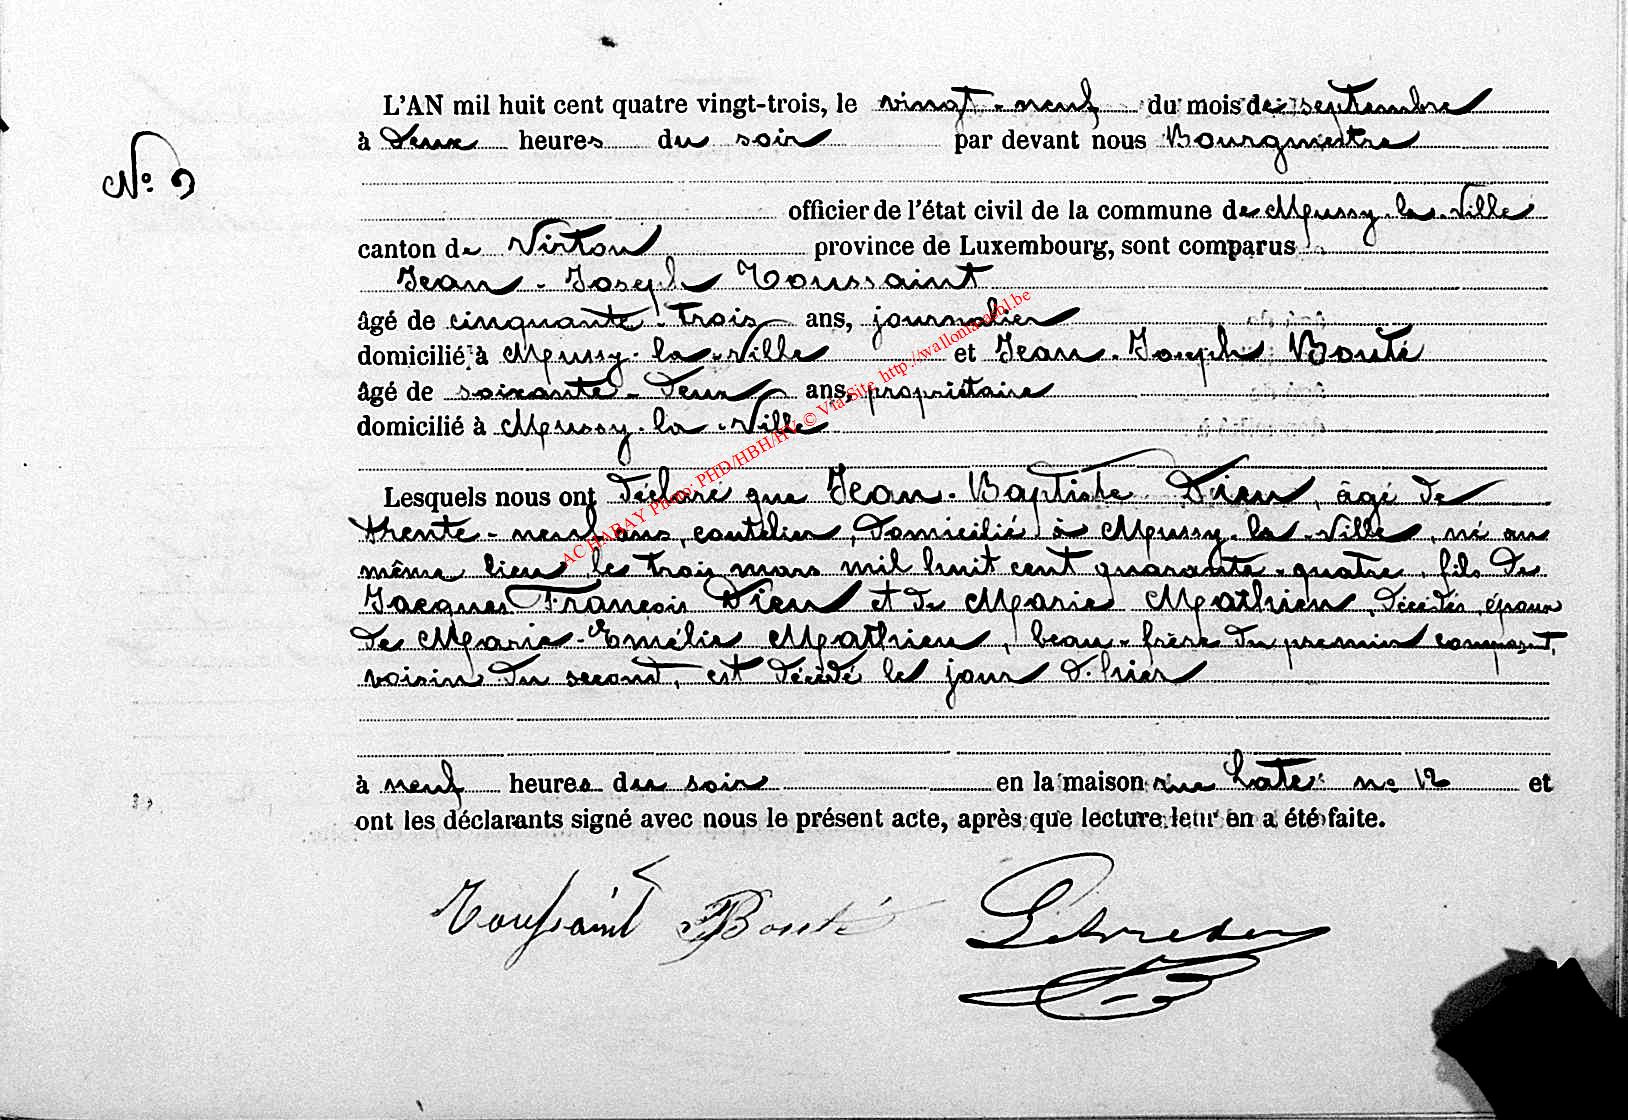 L'AN mil huit cent quatre vingt-trois, le vingt-neuf du mois de septembre
à deux heures du soir par devant nous Bourgmestre
N° 9
officier de l'état civil de la commune de Mussy-la-Ville
canton de Virton province de Luxembourg, sont comparus
Jean-Joseph Toussaint
âgé de cinquante-trois ans, journalier
domicilié à Mussy-la-Ville et Jean-Joseph Bouté
âgé de soixante-deux ans, propriétaire
domicilié à Mussy-la-Ville
ACHABAY Photo: PHD/HBH/HV © Via Site http://wallonia-asbl.be
Lesquels nous ont déclaré que Jean-Baptiste Dieu, âgé de
trente-neuf ans, coutelier, domicilié à Mussy-la-Ville, né au
même lieu le trois mars mil huit cent quarante-quatre, fils de
Jacques François Dieu et de Marie Mathieu, décédés, époux
de Marie-Emélie Mathieu, beau-frère du premier comparant,
voisin du second, est décédé le jour d'hier
à neuf heures du soir en la maison rue n° 12 et
ont les déclarants signé avec nous le présent acte, après que lecture leur en a été faite.
Toussaint JJBouté